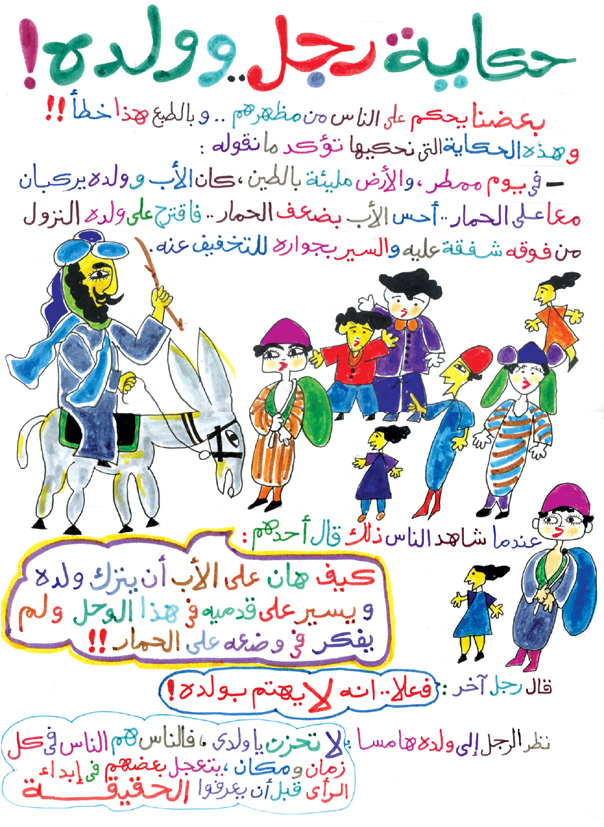 حكاية رجل .. وولده !
بعضنا يحكم على الناس من مظهرهم .. وبالطبع هذا خطأ !!
وهذه الحكاية التى نحكيها تؤكد ما نقوله :
- فى يوم ممطر ، والأرض مليئة بالطين ، كان الأب وولده يركبان
معا على الحمار .. أحس الأب بضعف الحمار .. فاقترح على ولده النزول
من فوقه شفقة عليه والسير بجواره للتخفيف عنه .
عندما شاهد الناس ذلك قال أحدهم :
كيف هان على الأب أن يترك ولده
ويسير على قدميه فى هذا الوحل ولم
يفكر فى وضعه على الحمار !!
قال رجل آخر : فعلا .. انه لا يهتم بولده !
نظر الرجل إلى ولده هامسا : لا تحزن يا ولدى ، فالناس هم الناس فى كل
زمان ومكان ، يتعجل بعضهم فى إبداء
الرأى قبل أن يعرفوا الحقيقة